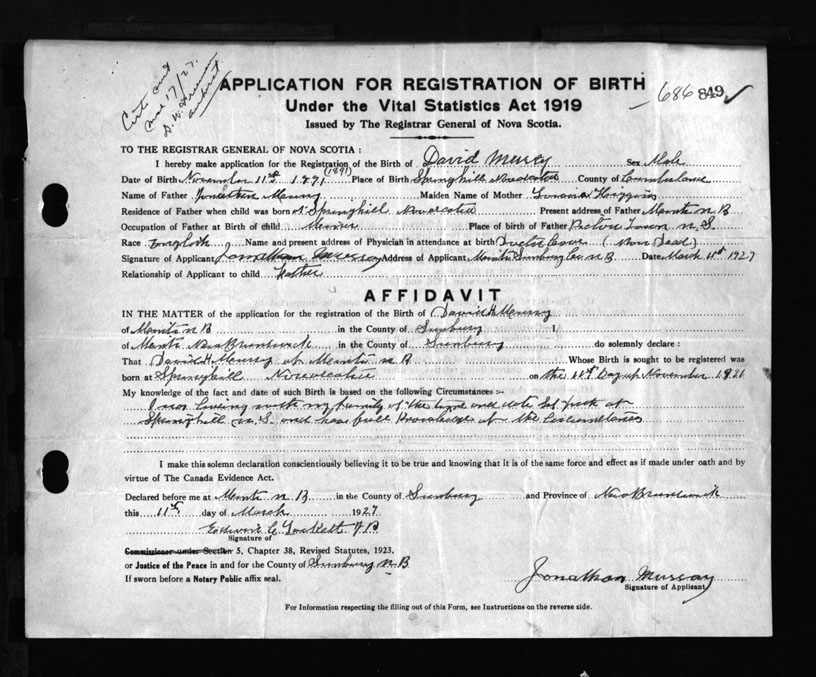 Cert. sent
Mar 17/27.
APPLICATION FOR REGISTRATION OF BIRTH
686 849 ✓
Under the Vital Statistics Act 1919
Issued by The Registrar General of Nova Scotia.
TO THE REGISTRAR GENERAL OF NOVA SCOTIA :
I hereby make application for the Registration of the Birth of David Murry Sex Male
(1891)
Date of Birth November 11th 1891 Place of Birth Springhill Novascotia County of Cumberland
Name of Father Jonathan Murry Maiden Name of Mother Higgins
Residence of Father when child was born at Springhill Novascotia Present address of Father N B
Occupation of Father at Birth of child Miner Place of birth of Father Pictou Town N. S.
Race English Name and present address of Physician in attendance at birth Doctor (Now Dead)
Signature of Applicant Jonathan Murray Address of Applicant Sunbury Co N. B Date March 11th 1927
Relationship of Applicant to child Father
AFFIDAVIT
IN THE MATTER of the application for the registration of the Birth of David H Murry
of N B in the County of Sunbury I,
of New Brunswick in the County of Sunbury do solemnly declare :
That David H. Murry of N B Whose Birth is sought to be registered was
born at Springhill Novascotia on the 11th Day of November
My knowledge of the fact and date of such Birth is based on the following Circumstances :-
I was living with my family at the time and date set forth at
Springhill N. S. and have full knowledge of the circumstances
I make this solemn declaration conscientiously believing it to be true and knowing that it is of the same force and effect as if made under oath and by
virtue of The Canada Evidence Act.
Declared before me at N B in the County of Sunbury and Province of New Brunswick
this 11th day of March 1927
J P
Signature of
Commissioner under Section 5, Chapter 38, Revised Statutes, 1923,
or Justice of the Peace in and for the County of Sunbury N. B
If sworn before a Notary Public affix seal.
Jonathan Murray
Signature of Applicant
For Information respecting the filling out of this Form, see Instructions on the reverse side.